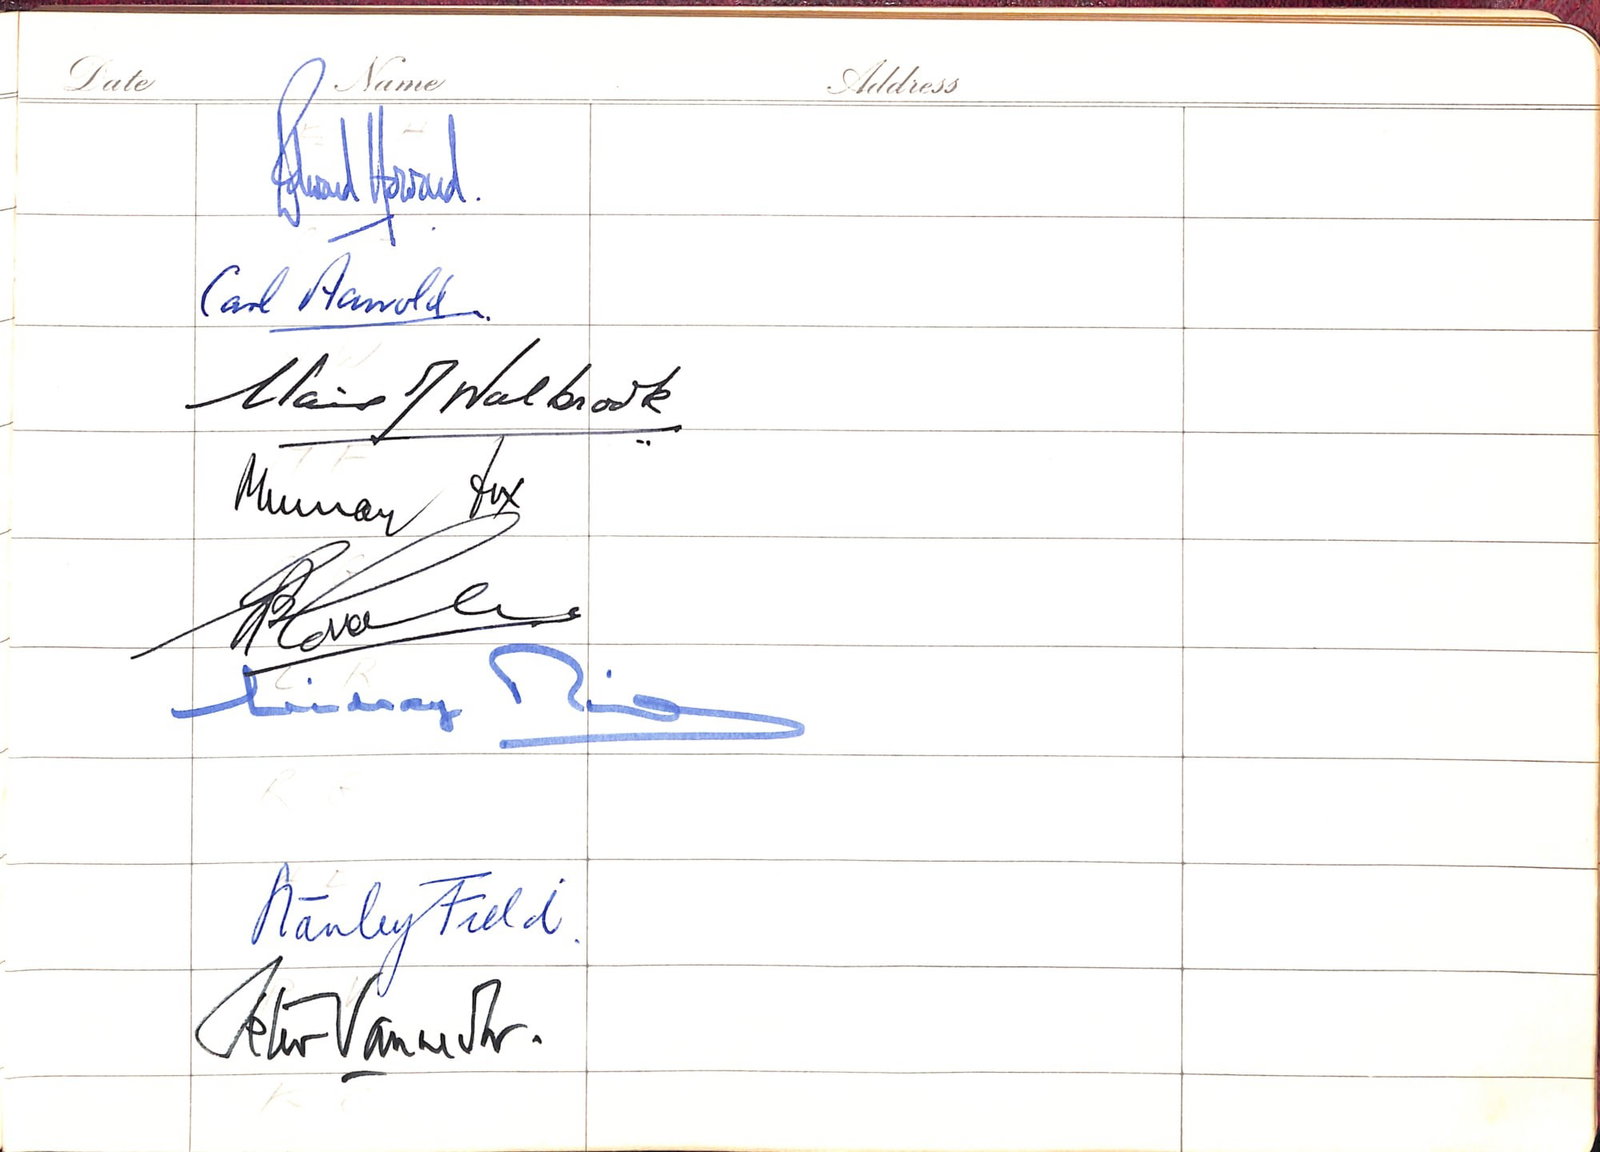 Date Name Address
Edward Howard.
Carl Aarvold.
Walbrook
Murray Fox
Lindsay Ring
Stanley Field.
Peter Vanneck.